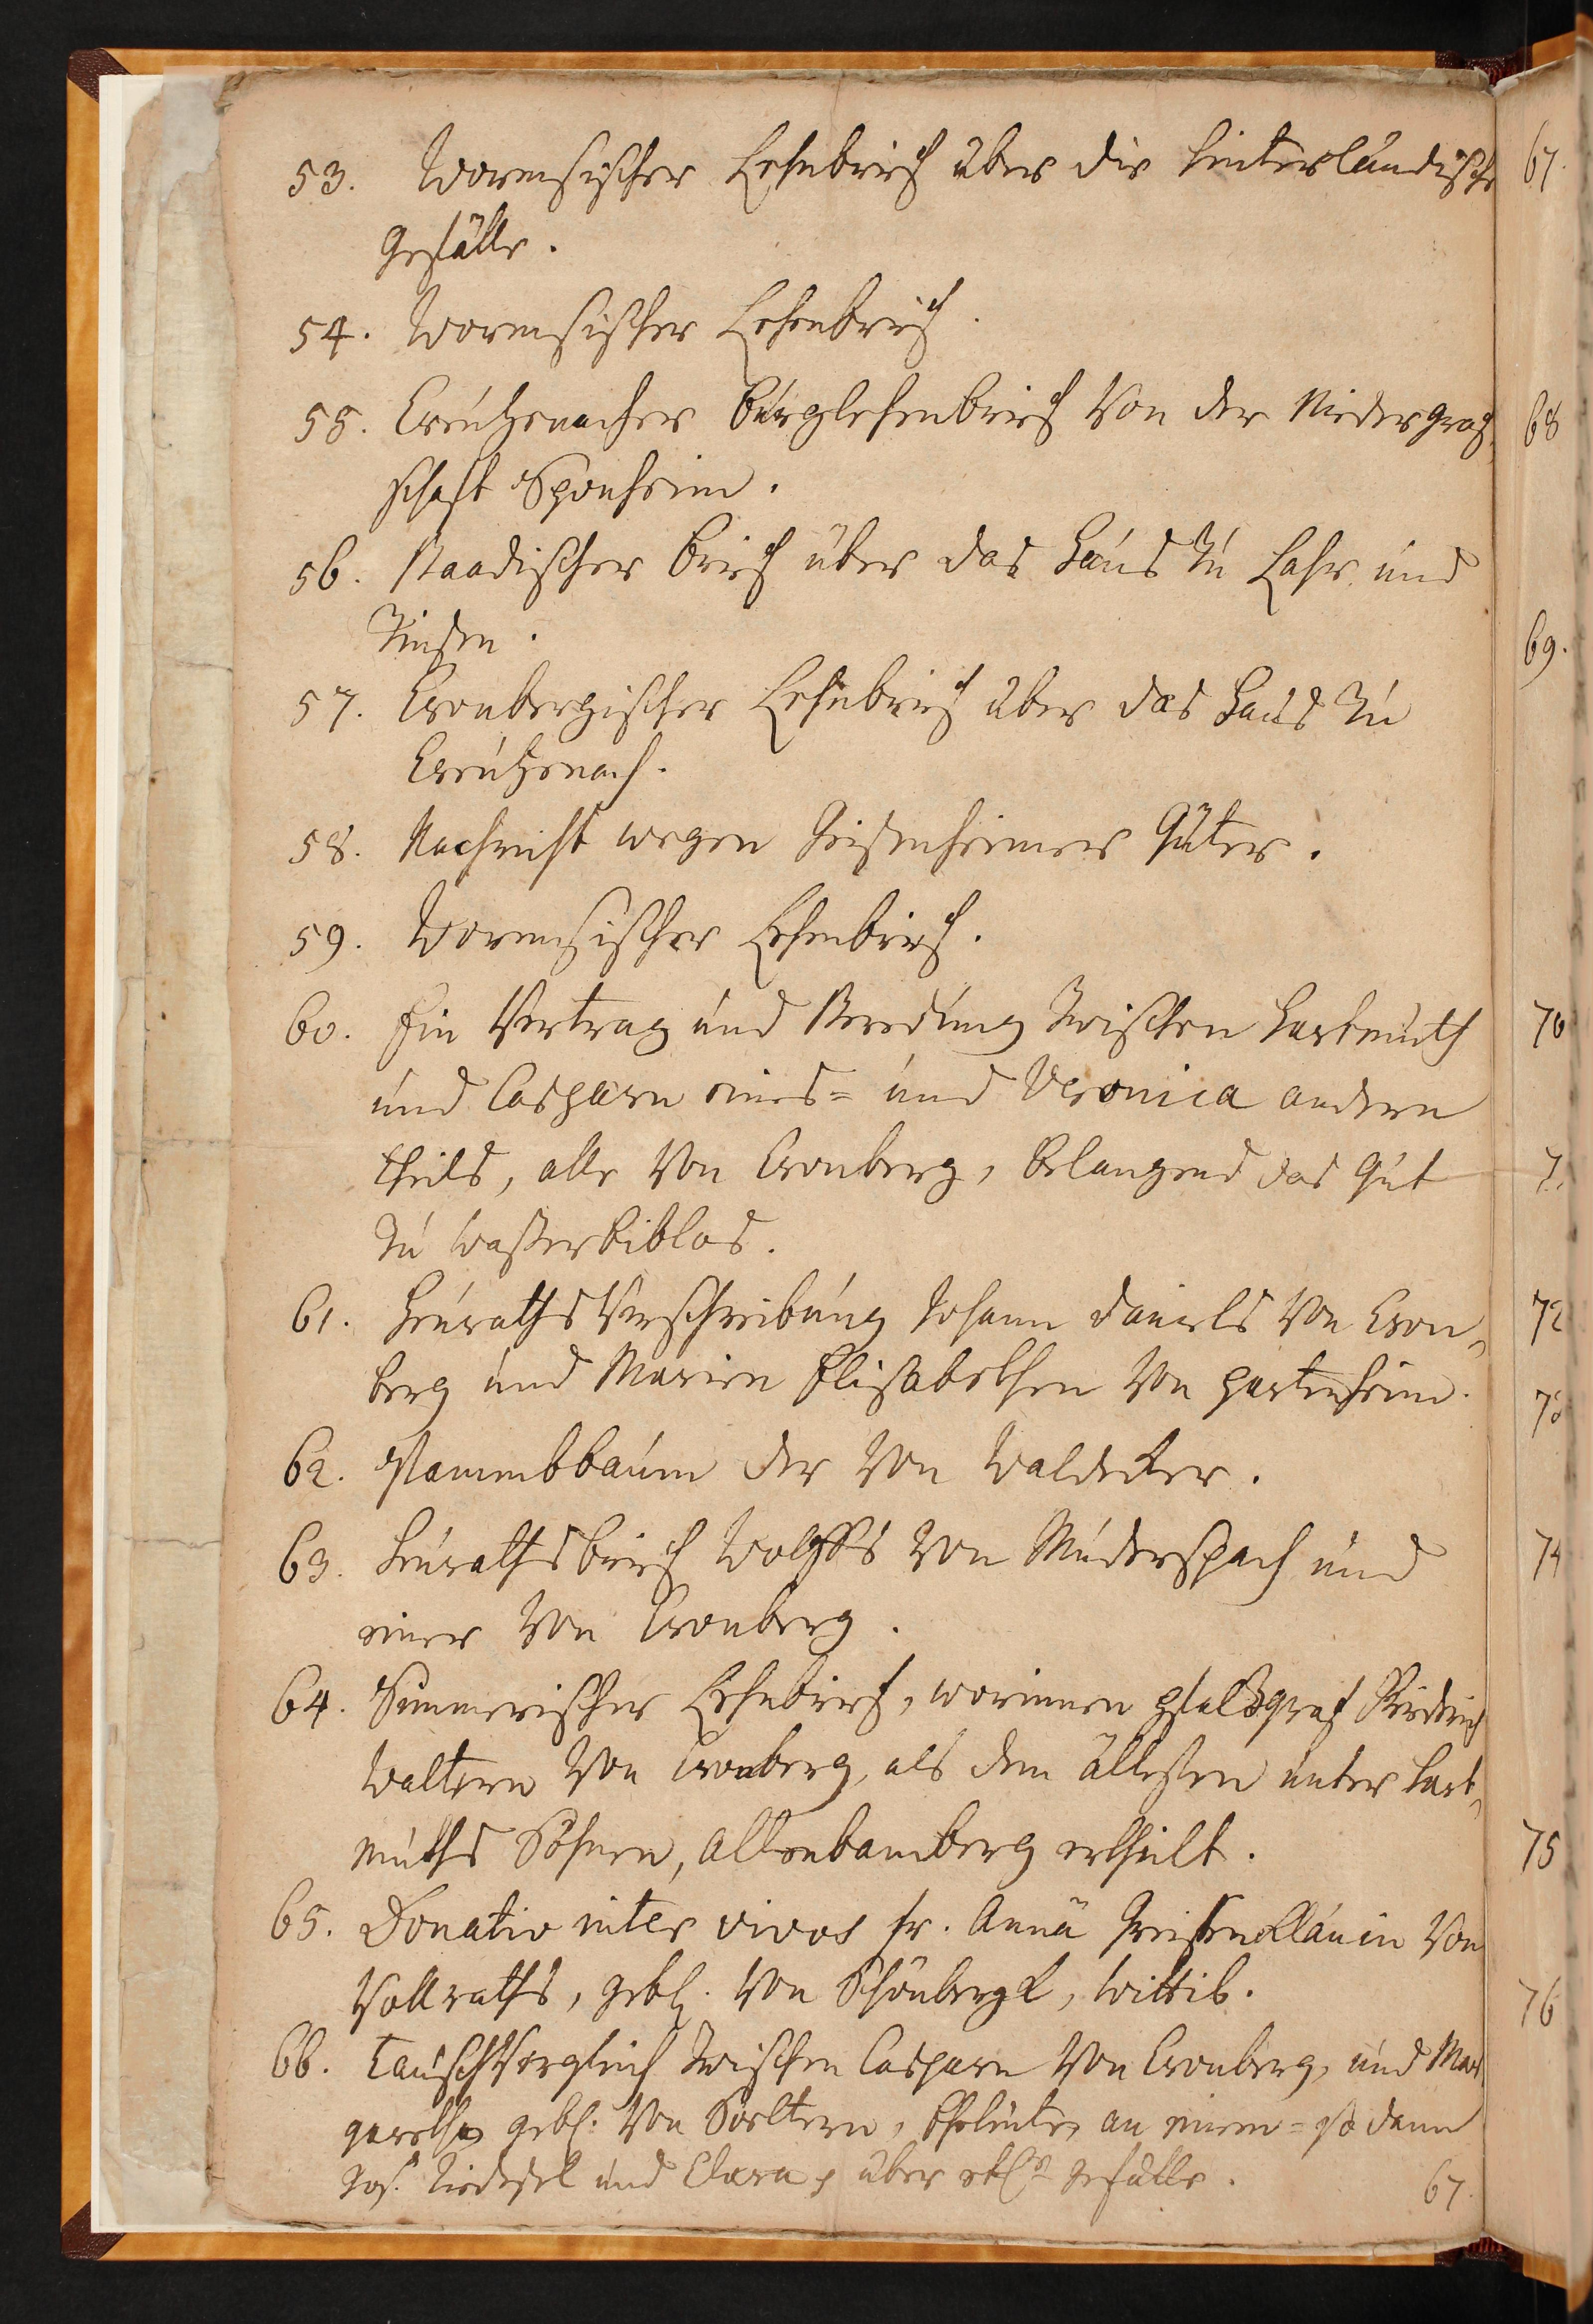 53. Wormsischer Lehnbrief über die hinterländische
Gefälle.
54. Wormsischer Lehenbrief.
55. Creützenacher Burglehenbrief von der Niedergraf-
schafft Sponheim.
56. Staadischer Brief über das Haus zu Lahr und
Zinsen.
57. Cronbergischer Lehnbrief über das Haus zu
Creützenach.
58. Nachricht wegen Geisenheimer Güter.
59. Wormsischer Lehenbrief.
60. Ein Vertrag und Beredung zwischen Hartmuth
und Casparn eines- und Veronica andern
theils, alle von Cronberg, belangend das Gut
zu Waßerbiblos.
61. Heuraths Verschreibung Johann Daniels von Cron-
berg und Marien Elisabethen von Partenheim.
62. Stammbbaum der von Waldecker.
63. Heurathsbrief Wolffs von Muderspach und
einer von Cronberg.
64. Simmerischer Lehnbrief, worinnen Pfaltzgraf Friderich
Waltern von Cronberg, als dem ältesten unter Hart-
muths Söhnen, Altenbamberg ertheilt.
65. Donatio inter vivos fr. Annä Greiffenclauin von
Vollraths, gebh. von Schönbergk, Wittib.
66. Tausch Vergleich zwischen Casparn von Cronberg, und Mar
garetha gebh. von Soeltern, Eheleuten an einem- so dann
Joh. Riedesel und Clara, über etl. Gefälle.
67.
67.
68
69.
70
7.
72
73
74
75
76